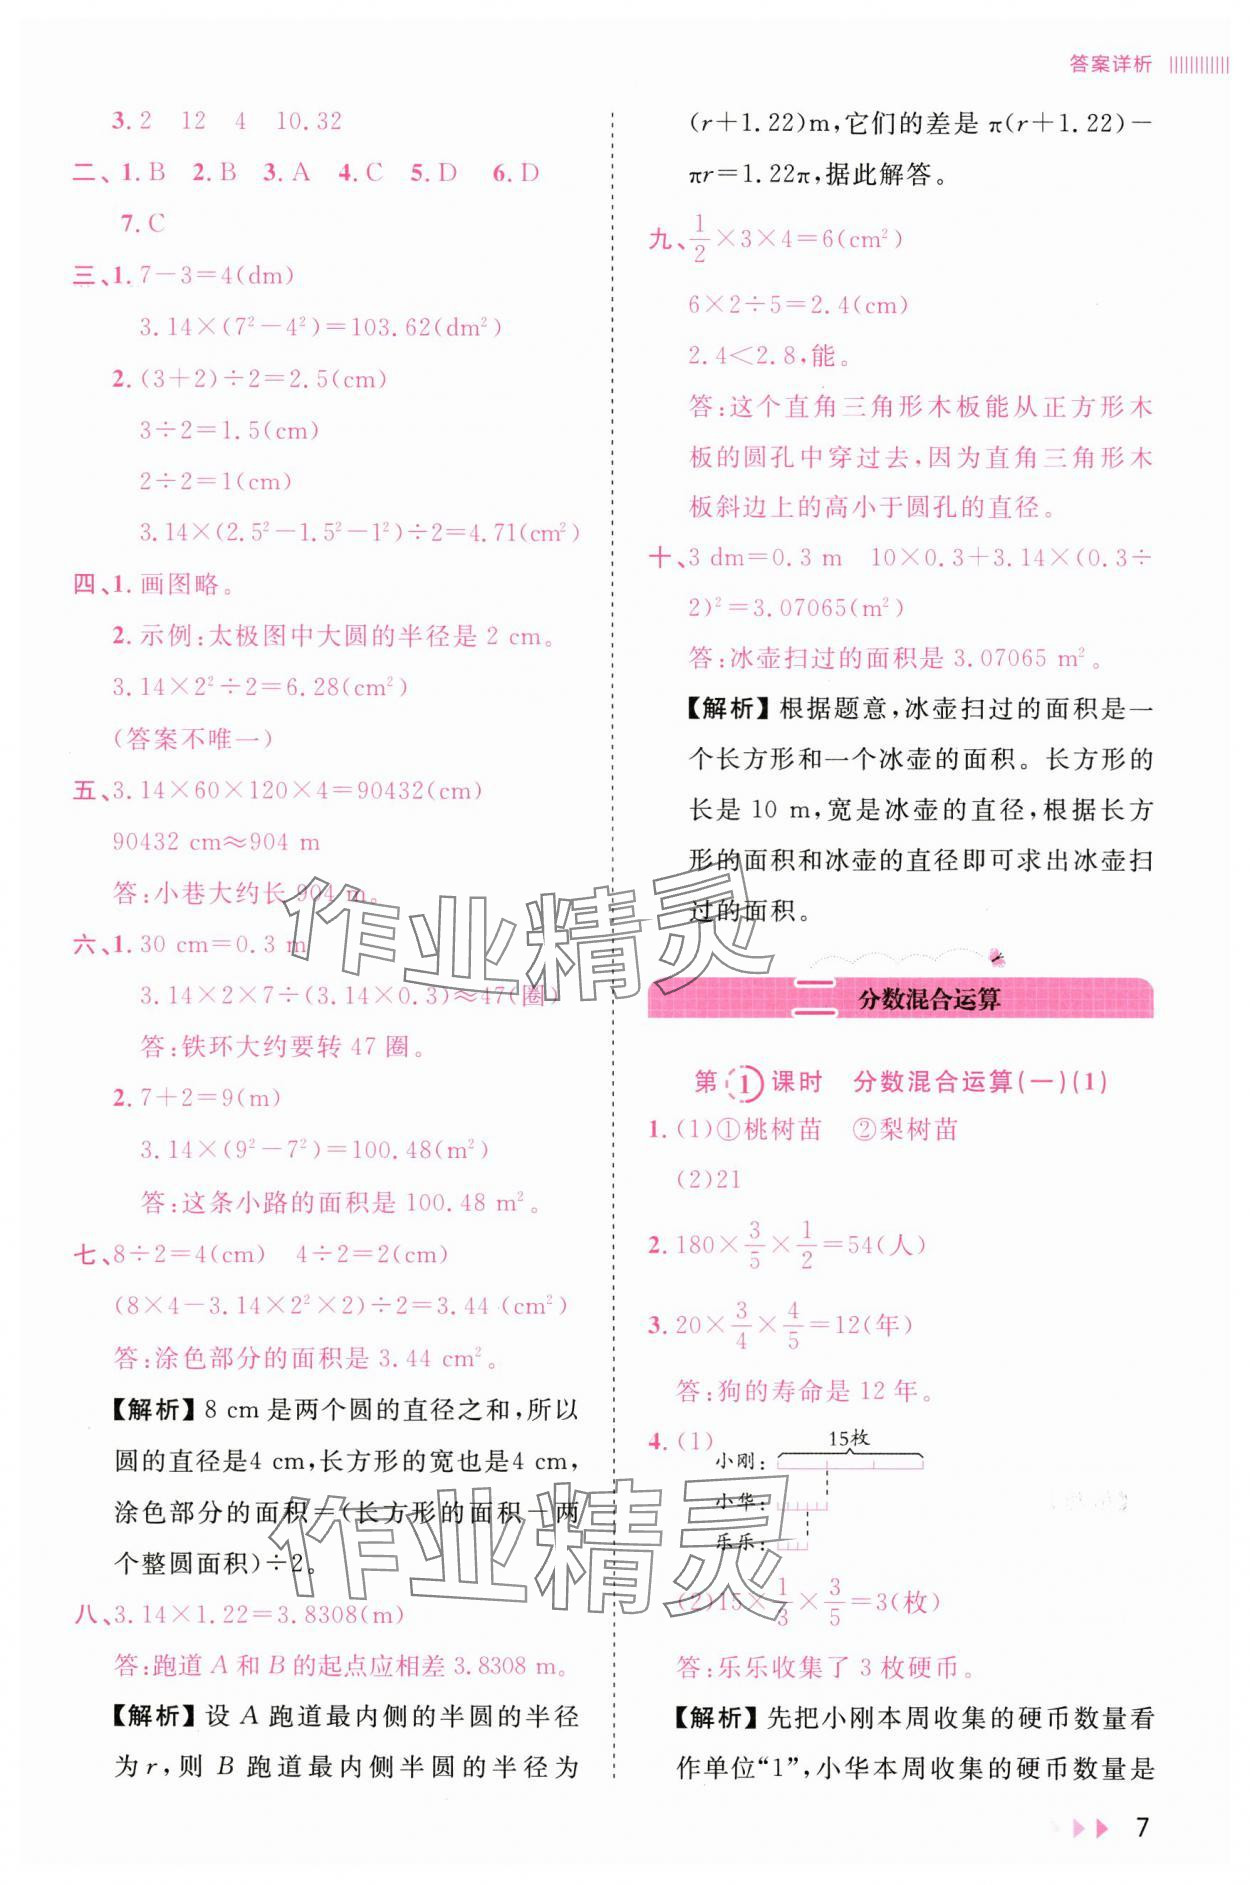 答案详析
3. 2　12　4　10.32
二、1. B　2. B　3. A　4. C　5. D　6. D
7. C
三、1. 7－3＝4(dm)
3.14×(7²－4²)＝103.62(dm²)
2. (3＋2)÷2＝2.5(cm)
3÷2＝1.5(cm)
2÷2＝1(cm)
3.14×(2.5²－1.5²－1²)÷2＝4.71(cm²)
四、1. 画图略。
2. 示例：太极图中大圆的半径是 2 cm。
3.14×2²÷2＝6.28(cm²)
(答案不唯一)
五、3.14×60×120×4＝90432(cm)
90432 cm≈904 m
答：小巷大约长 904 m。
六、1. 30 cm＝0.3 m
3.14×2×7÷(3.14×0.3)≈47(圈)
答：铁环大约要转 47 圈。
2. 7＋2＝9(m)
3.14×(9²－7²)＝100.48(m²)
答：这条小路的面积是 100.48 m²。
七、8÷2＝4(cm)　4÷2＝2(cm)
(8×4－3.14×2²×2)÷2＝3.44 (cm²)
答：涂色部分的面积是 3.44 cm²。
【解析】8 cm 是两个圆的直径之和，所以
圆的直径是4 cm，长方形的宽也是4 cm，
涂色部分的面积＝(长方形的面积－两
个整圆面积)÷2。
八、3.14×1.22＝3.8308(m)
答：跑道 A 和 B 的起点应相差 3.8308 m。
【解析】设 A 跑道最内侧的半圆的半径
为 r，则 B 跑道最内侧半圆的半径为
(r＋1.22)m，它们的差是 π(r＋1.22)－
πr＝1.22π，据此解答。
九、1/2×3×4＝6(cm²)
6×2÷5＝2.4(cm)
2.4＜2.8，能。
答：这个直角三角形木板能从正方形木
板的圆孔中穿过去，因为直角三角形木
板斜边上的高小于圆孔的直径。
十、3 dm＝0.3 m　10×0.3＋3.14×(0.3÷
2)²＝3.07065(m²)
答：冰壶扫过的面积是 3.07065 m²。
【解析】根据题意，冰壶扫过的面积是一
个长方形和一个冰壶的面积。长方形的
长是 10 m，宽是冰壶的直径，根据长方
形的面积和冰壶的直径即可求出冰壶扫
过的面积。
二 分数混合运算
第 1 课时　分数混合运算(一)(1)
1. (1)①桃树苗　②梨树苗
(2)21
2. 180×3/5×1/2＝54(人)
3. 20×3/4×4/5＝12(年)
答：狗的寿命是 12 年。
4. (1)
15枚
小刚：
小华：
乐乐：
(2)15×1/3×3/5＝3(枚)
答：乐乐收集了 3 枚硬币。
【解析】先把小刚本周收集的硬币数量看
作单位“1”，小华本周收集的硬币数量是
7
作业精灵
作业精灵